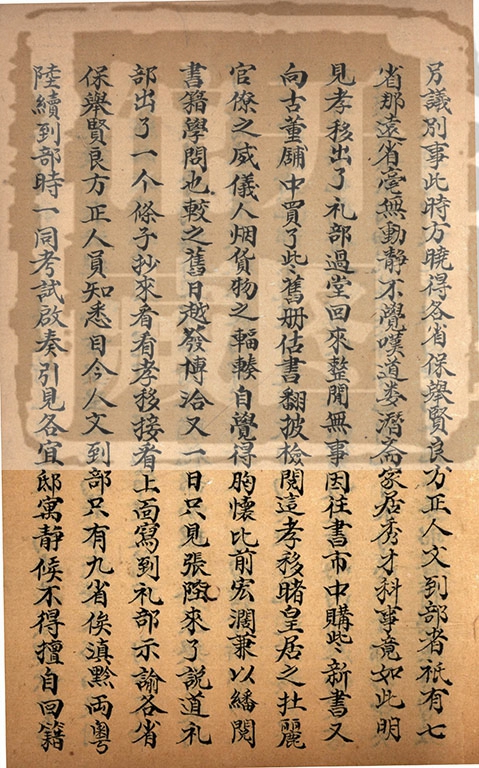 另議別事此時方曉得各省保舉賢良方正人文到部者祇有七
省那遠省毫無動靜不覺嘆道婁潛齋家居秀才料事竟如此明
見孝移出了礼部過堂回來整閒無事因往書市中購些新書又
向古董鋪中買了些舊册估書翻披檢閱這孝移睹皇居之壯麗
官僚之威儀人烟貨物之輻輳自覺得胸懷比前宏濶兼以繙閱
書籍學問也較之舊日越發博洽又一日只見張陞來了說道礼
部出了一个條子抄來看看孝移接着上面寫到礼部示諭各省
保舉賢良方正人員知悉目今人文到部只有九省俟滇黔両粵
陸續到部時一同考試啟奏引見各宜邸寓静候不得擅自回籍